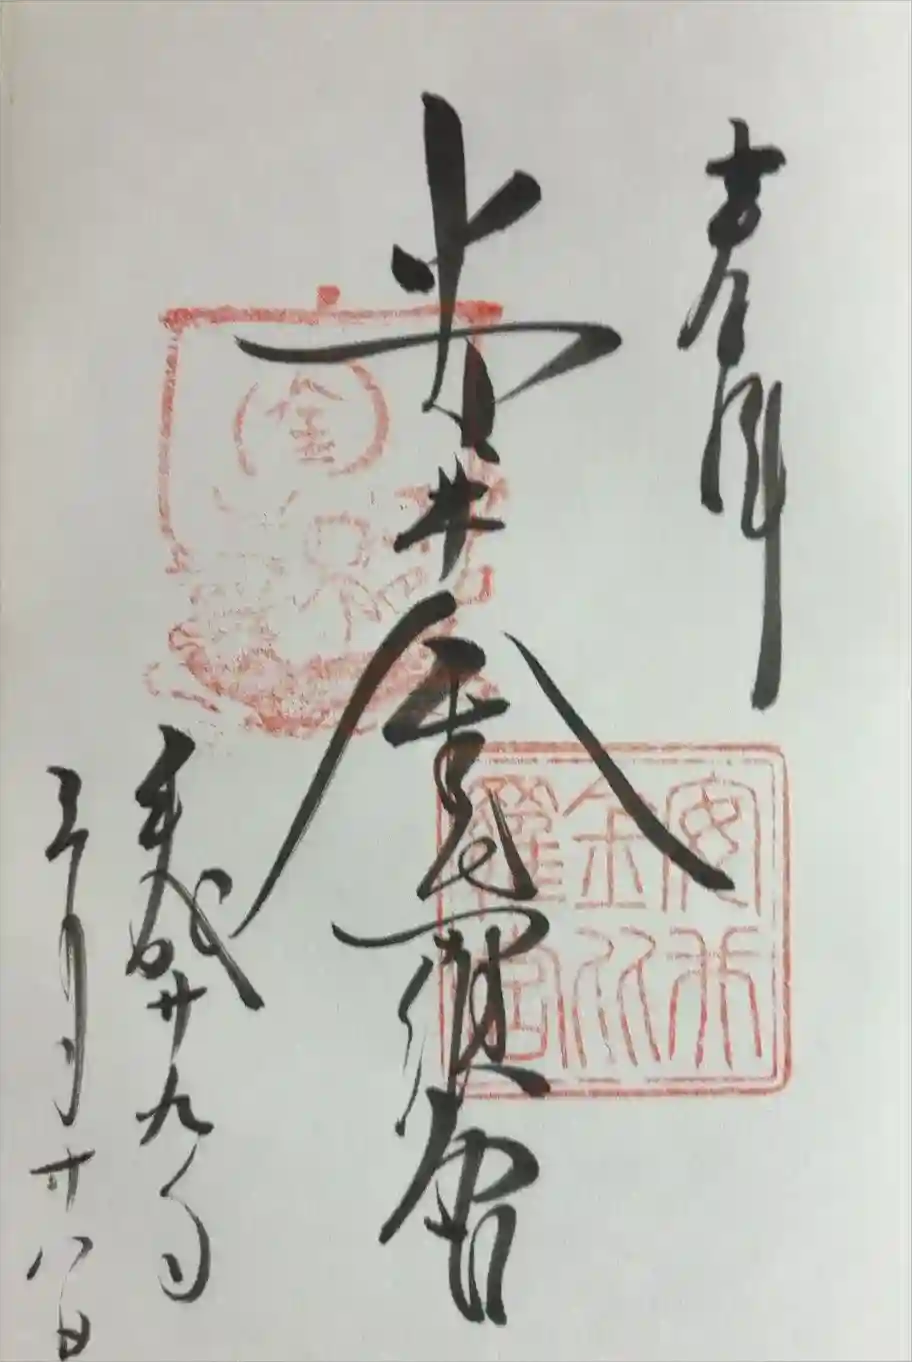 奉拝
安井金毘羅宮
平成廿九年
三月廿八日
金
安井
金比
羅宮